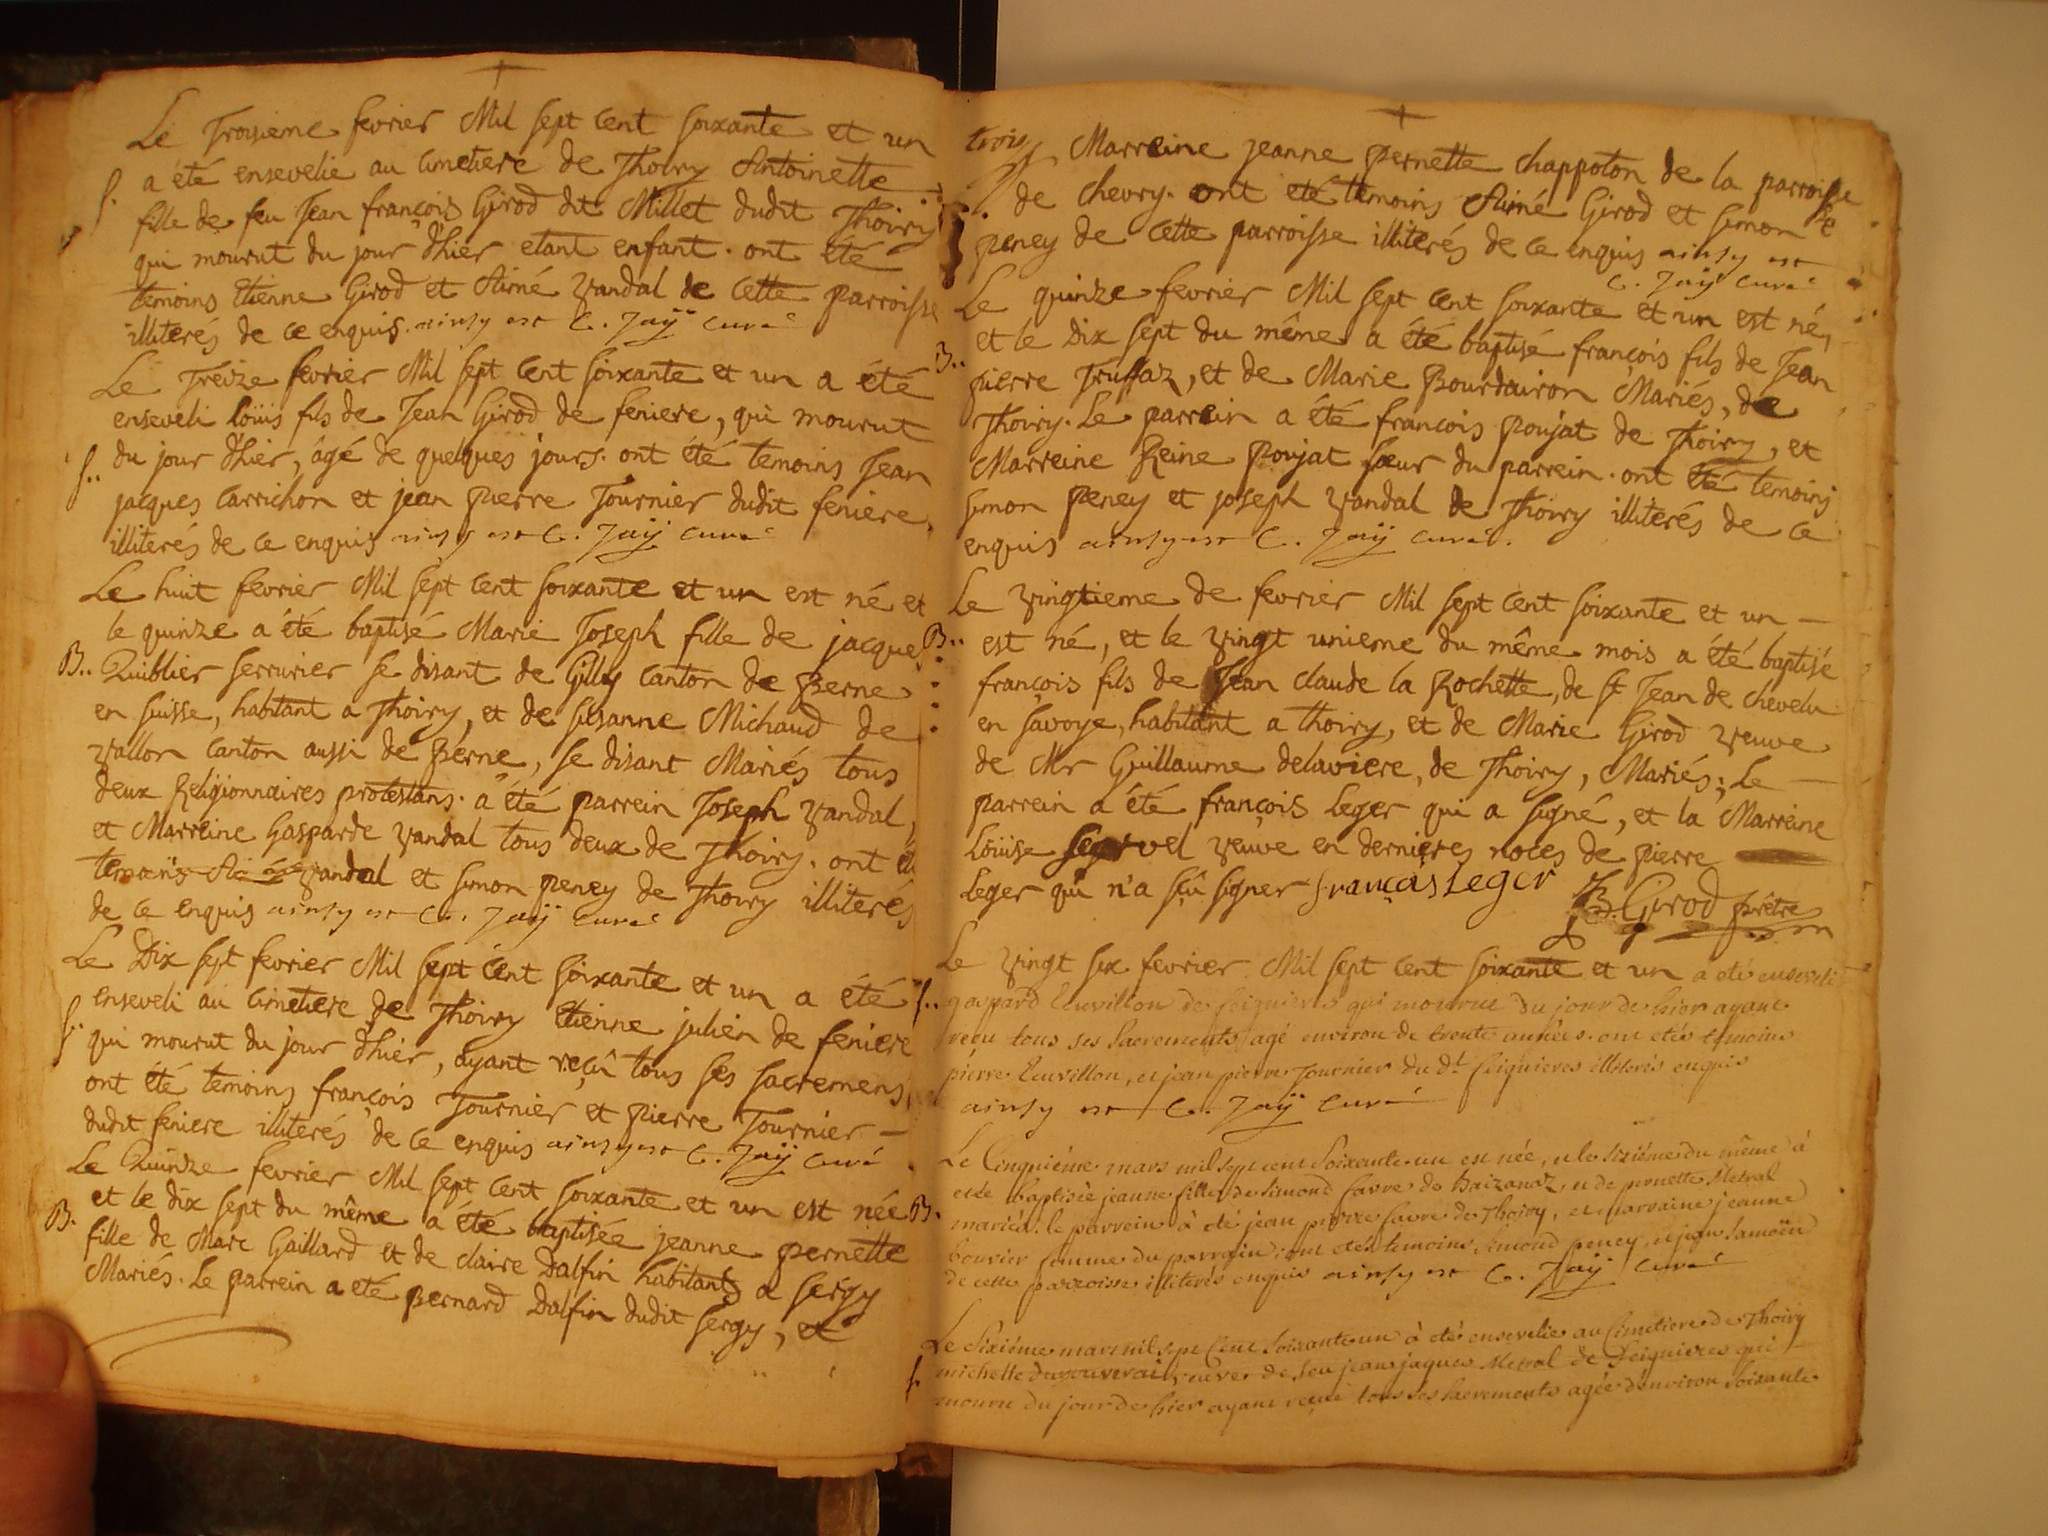 Le Troisieme fevrier Mil sept cent soixante et un
S. a été ensevelie au cimetiere de Thoiry Antoinette
fille de feu Jean françois Girod dit Millet dudit Thoiry
qui mourut du jour d'hier etant enfant. ont été
temoins Etienne Girod et Aimé Vandal de cette parroisse
illiterés de ce enquis. ainsy est C. Jaÿ curé
Le Treize fevrier Mil sept cent soixante et un a été
enseveli loüis fils de Jean Girod de feniere, qui mourut
S.. du jour d'hier, âgé de quelques jours. ont été temoins Jean
jacques Carrichon et jean pierre Tournier dudit feniere,
illiterés de ce enquis ainsy est C. Jaÿ curé
Le huit fevrier Mil sept cent soixante et un est né et
le quinze a été baptisé Marie Joseph fille de jacque
B.. Quiblier serrurier se disant de Gilly canton de Berne
en suisse, habitant a Thoiry, et de susanne Michaud de
vallon canton aussi de Berne, se disant Mariés tous
deux Religionnaires protestans. a été parrein Joseph Vandal,
et Marreine Gasparde Vandal tous deux de Thoiry. ont été
temoins Aimé Vandal et simon peney de Thoiry illiterés
de ce enquis ainsy est C. Jaÿ curé
Le Dix sept fevrier Mil sept cent soixante et un a été
enseveli au cimetiere de Thoiry Etienne julien de feniere
S. qui mourut du jour d'hier, ayant reçû tous ses sacremens,
ont été temoins françois Tournier et pierre Tournier —
dudit feniere illiterés de ce enquis ainsy est C. Jaÿ curé
Le Quinze fevrier Mil sept cent soixante et un est née
B. et le dix sept du même a été baptisée jeanne pernette
fille de Marc Gaillard et de claire Dalfin habitants a sergy
Mariés. Le parrein a eté Bernard Dalfin dudit sergy, et
trois
Marreine jeanne pernette chappoton de la parroisse
de chevry. ont eté temoins Aimé Girod et simon
peney de cette parroisse illiterés de ce enquis ainsy est
C. Jaÿ curé
Le quinze fevrier Mil sept cent soixante et un est né,
B.. et le Dix sept du même a été baptisé françois fils de Jean
pierre Truffaz, et de Marie Bourdairon Mariés, de
Thoiry. Le parrein a été françois poujat de Thoiry, et
Marreine Reine poujat sœur du parrein. ont été temoins
simon peney et joseph Vandal de Thoiry illiterés de ce
enquis ainsy est C. Jaÿ curé.
Le Vingtieme de fevrier Mil sept cent soixante et un —
B.. est né, et le vingt unieme du même mois a été baptisé
françois fils de Jean claude la Rochette, de St Jean de chevelu
en savoye, habitant a Thoiry, et de Marie Girod veuve
de Mr Guillaume delaviere, de Thoiry, Mariés; Le —
parrein a été françois Leger qui a signé, et la Marreine
Loüise veuve en dernieres noces de pierre
Leger qui n'a sçû signer françois Leger JB. Girod prêtre
Le vingt six fevrier Mil sept cent soixante et un a eté enseveli
S.. gaspard Levrillon de feignieres qui mourut du jour de hier ayant
reçu tous ses sacrements agé environ de trente années. ont etés temoins
pierre Levrillon, et jean pierre Tournier du dt feignieres illiterés enquis
ainsy est C. Jaÿ curé
Le Cinquiéme mars mil sept cent soixante un est née, et le sixiéme du même à
B. etée baptisée jeanne fille de simond favre de Baizanaz, et de pernette Metral
mariés. le parrein à eté jean pierre favre de Thoiry, et marraine jeanne
bouvier femme du parrain. ont etés temoins simond peney, et jean samoën
de cette parroisse illiterés enquis ainsy est C. Jaÿ curé
Le Sixiéme mars mil sept cent soixante un à eté ensevelie au Cimetiere de Thoiry
S. michette veuve de feu jean jaques Metral de feignieres qui
mouru du jour de hier ayant reçue tous ses sacrements agée d'environ soixante